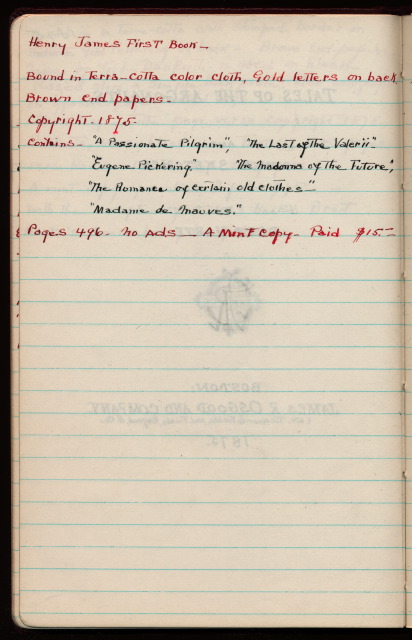 Henry James First Book —
Bound in Terra-Cotta color cloth, Gold letters on back.
Brown end papers -
Copyright - 1875 -
Contains - "A Passionate Pilgrim", "The Last of the Valerii"
"Eugene Pickering." "The Madonna of the Future",
"The Romance of certain old clothes"
"Madame de Mauves."
Pages 496 - No Ads — A Mint Copy - Paid $15.—